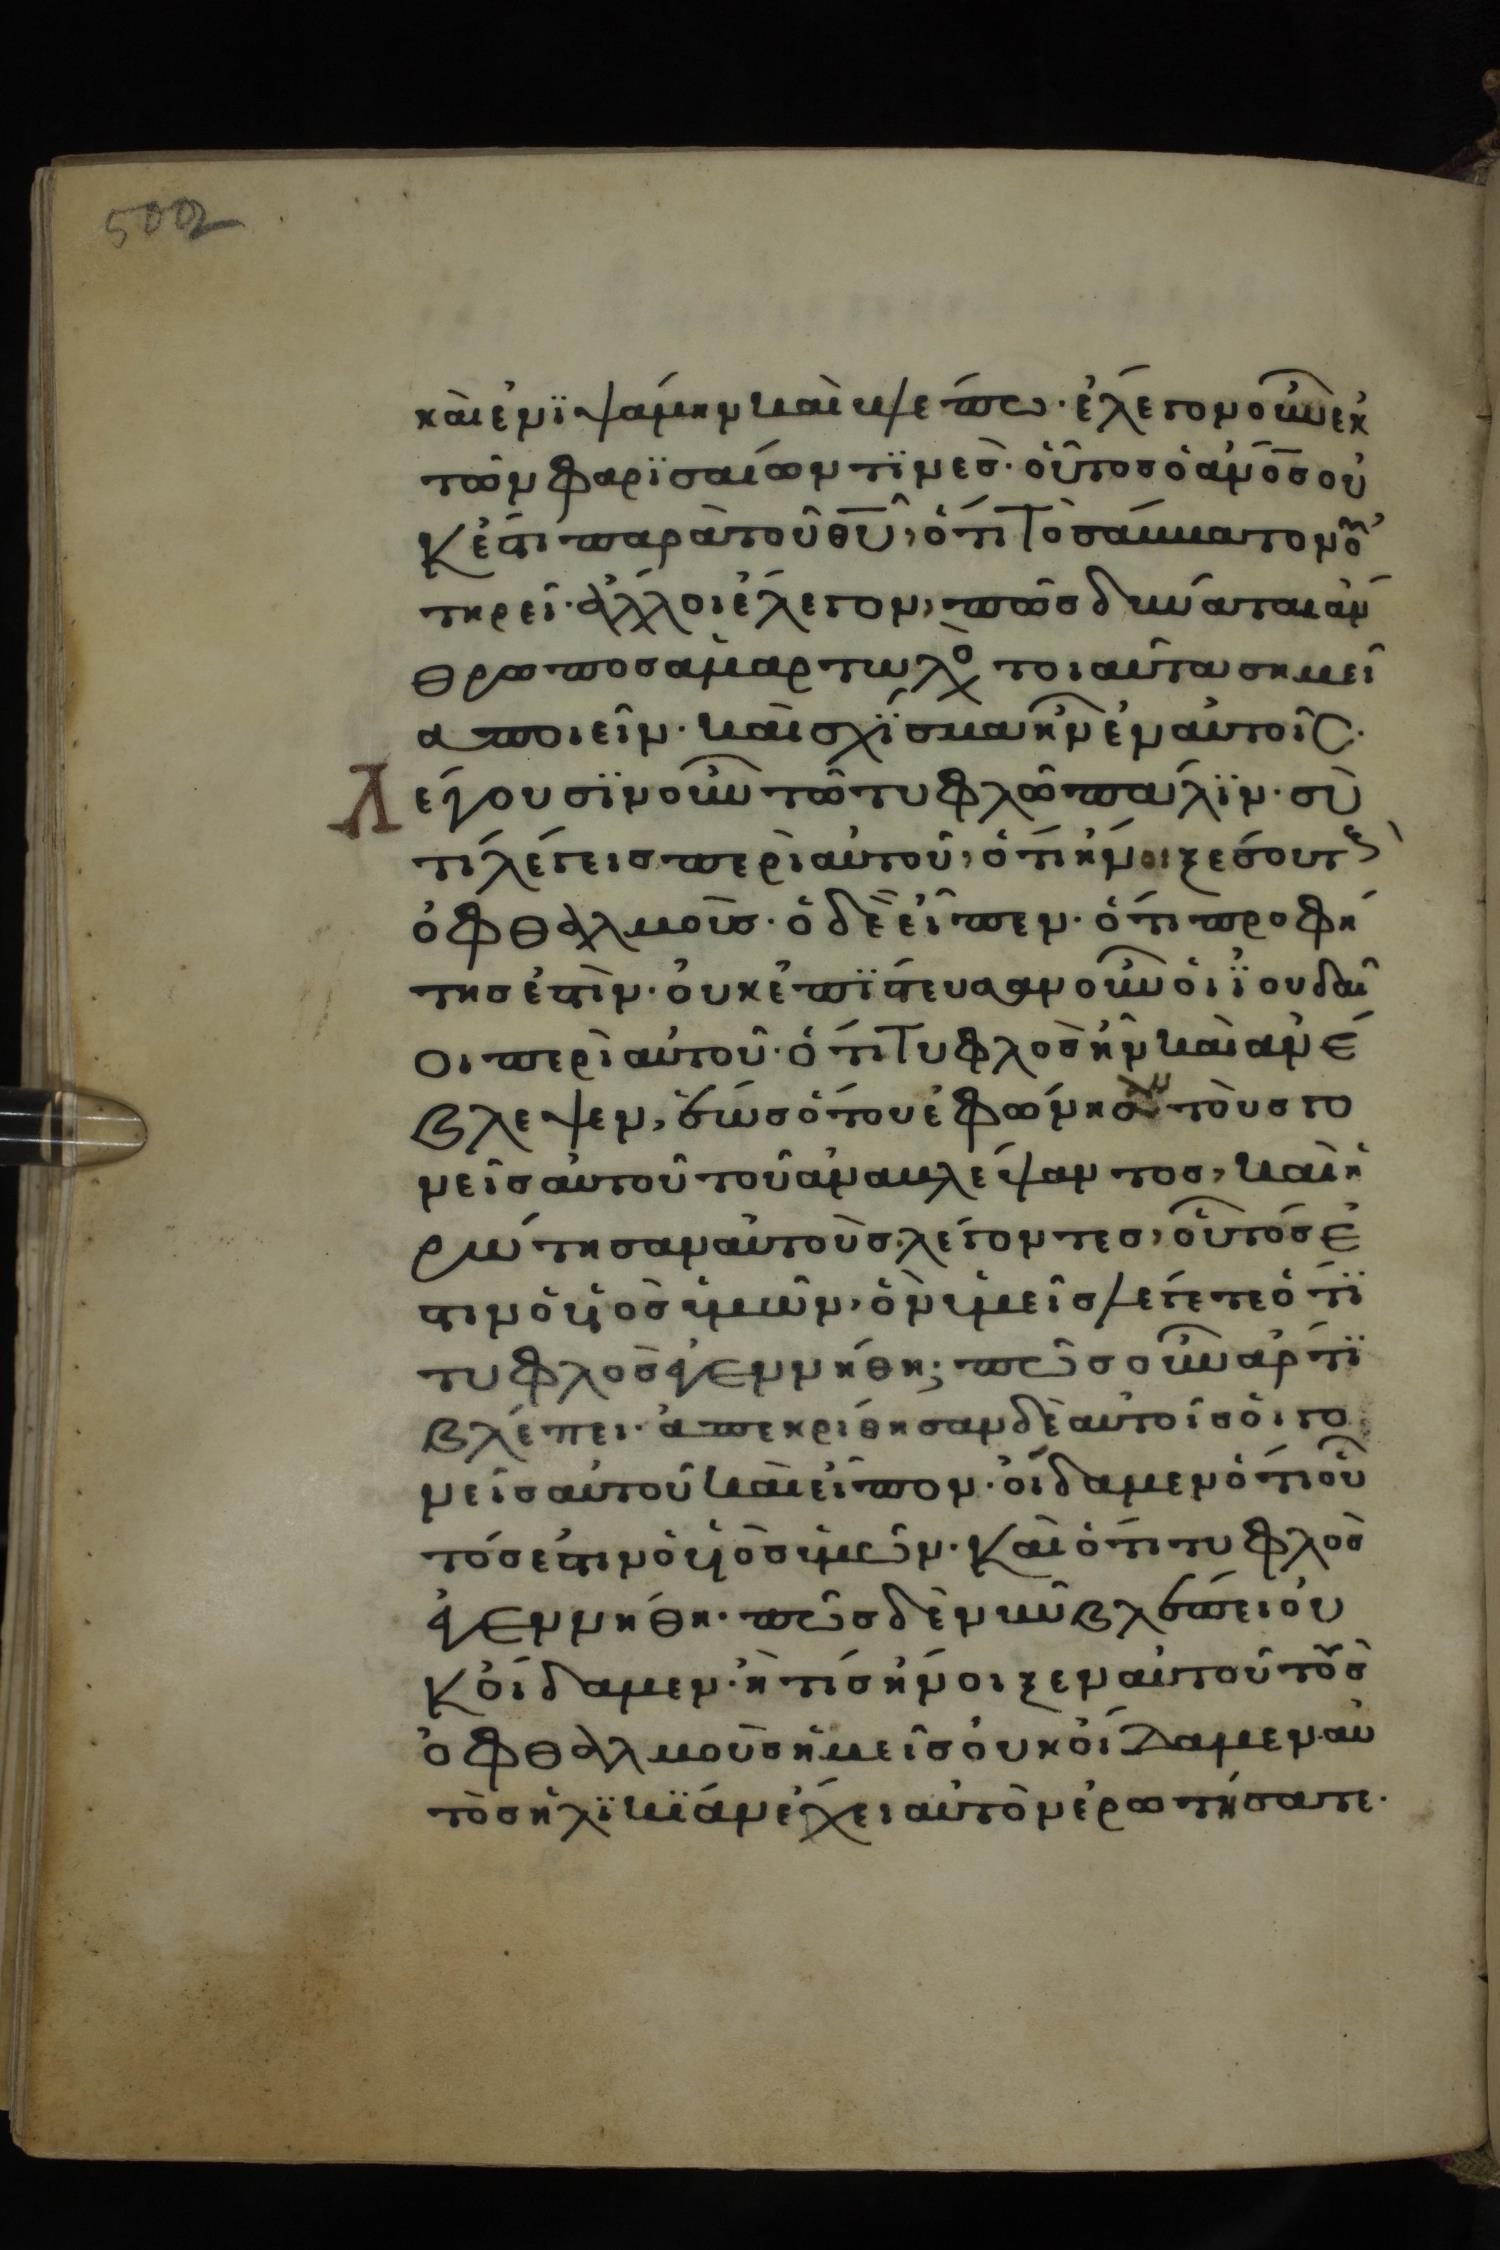 502
καὶ ἐνϊψάμην καὶ βλέπω· ἔλεγον οὖν ἐκ
τῶν φαρϊσαίων τϊνὲς· οὗτος ὁ ἄνος οὐ
κ ἔστι παρὰ τοῦ θυ, ὅτι τὸ σάββατον οὐ
τηρεῖ· ἄλλοι ἔλεγον, πῶς δύναται ἄν
θρωπος ἁμαρτωλὸ τοιαῦτα σημεῖ
α ποιεῖν· καὶ σχΐσμα ἦν ἐν αὐτοῖς·
Λέγουσϊν οὖν τῶ τυφλῶ πάλϊν· σὺ
τί λέγεις περὶ αὐτοῦ, ὅτι ἤνοιξέ σου τς
ὀφθαλμοὺς· ὁ δὲ εἶπεν· ὅτι προφή
της ἐστὶν· οὐκ ἐπΐστευσαν οὖν οἱ ϊουδαῖ
οι περὶ αὐτοῦ· ὅτι τυφλὸς ἦν καὶ ἀνέ
βλεψεν, ἕως ὅτου ἐφώνησαν τοὺς γο
νεῖς αὐτοῦ τοῦ ἀναβλέψαντος, καὶ ἠ
ρώτησαν αὐτοὺς λέγοντες, οὗτός ἐ
στιν ὁ υἱὸς ὑμῶν, ὃν ὑμεῖς λέγετε ὅτϊ
τυφλὸς ἐγεννήθη; πῶς οὖν ἄρτϊ
βλέπει· ἀπεκρίθησαν δὲ αὐτοῖς οἱ γο
νεῖς αὐτοῦ καὶ εἶπον· οἴδαμεν ὅτι οὗ
τός ἐστιν ὁ υἱὸς ἡμῶν· καὶ ὅτι τυφλὸς
ἐγεννήθη· πῶς δὲ νῦν βλέπει οὐ
κ οἴδαμεν· ἢ τίς ἤνοιξεν αὐτοῦ τοὺς
ὀφθαλμοὺς ἡμεῖς οὐκ οἴδαμεν· αὐ
τὸς ἡλϊκϊάν ἔχει αὐτὸν ἐρωτήσατε·